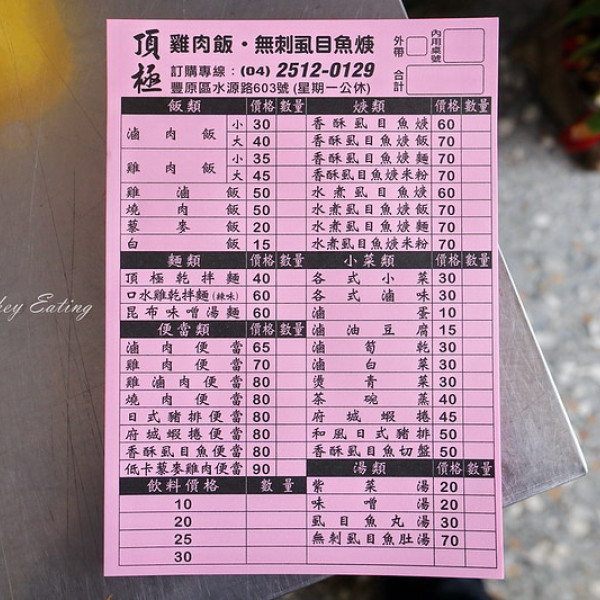 頂極 雞肉飯・無刺虱目魚焿
外帶 內用桌號
訂購專線：(04) 2512-0129
合計
豐原區水源路603號 (星期一公休)
飯類 價格 數量
滷肉飯 小 30
大 40
雞肉飯 小 35
大 45
雞滷飯 50
燒肉飯 50
藜麥飯 20
白飯 15
麵類 價格 數量
頂極乾拌麵 40
口水雞乾拌麵(辣味) 60
昆布味噌湯麵 60
便當類 價格 數量
滷肉便當 65
雞肉便當 70
雞滷肉便當 80
燒肉便當 80
日式豬排便當 80
府城蝦捲便當 80
香酥虱目魚便當 80
低卡藜麥雞肉便當 90
飲料價格 數量
10
20
25
30
焿類 價格 數量
香酥虱目魚焿 60
香酥虱目魚焿飯 70
香酥虱目魚焿麵 70
香酥虱目魚焿米粉 70
水煮虱目魚焿 60
水煮虱目魚焿飯 70
水煮虱目魚焿麵 70
水煮虱目魚焿米粉 70
小菜類 價格 數量
各式小菜 30
各式滷味 30
滷蛋 10
滷油豆腐 15
滷筍乾 30
滷白菜 30
燙青菜 30
茶碗蒸 40
府城蝦捲 45
和風日式豬排 50
香酥虱目魚切盤 50
湯類 價格 數量
紫菜湯 20
味噌湯 20
虱目魚丸湯 30
無刺虱目魚肚湯 70
key Eating